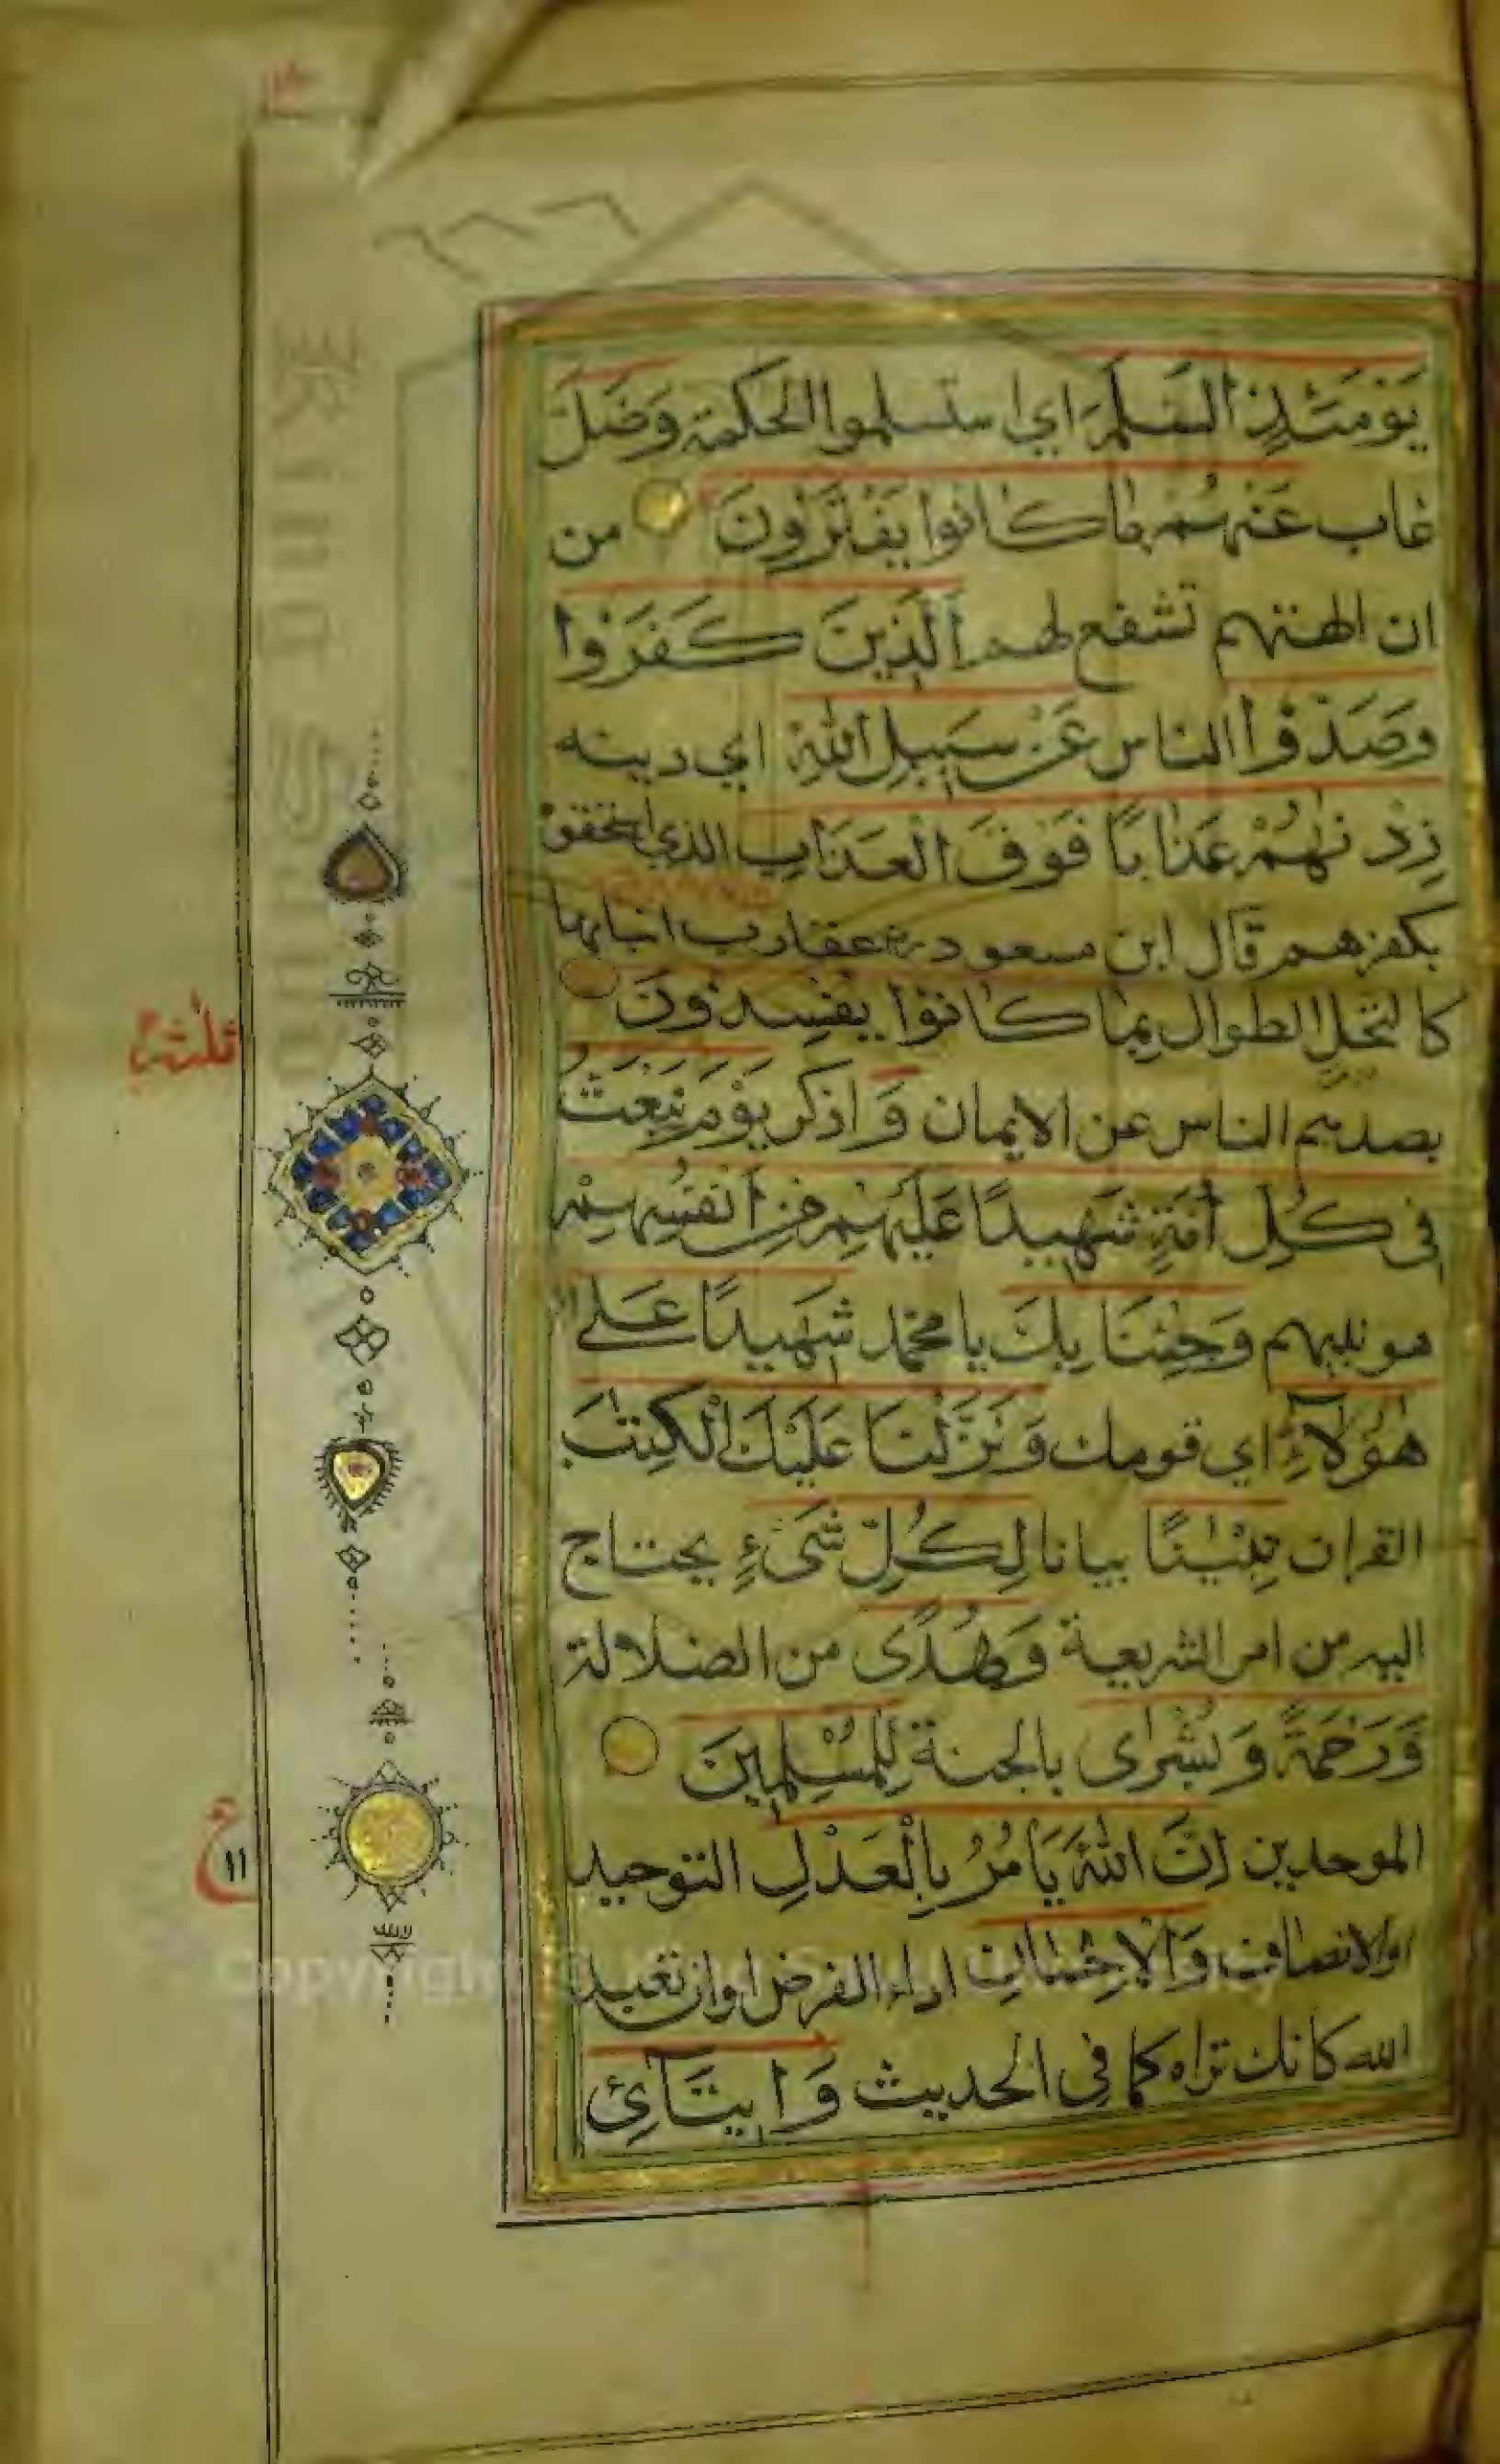 يَوْمَئِذٍ السَّلَمَ اي استسلموا لحكمه وَضَلَّ
غاب عَنْهُمْ مَا كَانُوا يَفْتَرُونَ من
ان الهتهم تشفع لهم الَّذِينَ كَفَرُوا
وَصَدُّوا الناس عَنْ سَبِيلِ اللَّهِ اي دينه
زِدْنٰهُمْ عَذَابًا فَوْقَ الْعَذَابِ الذي استحقوه
بكفرهم قال ابن مسعود رض عقارب انيابها
كالنخل الطوال بِمَا كَانُوا يُفْسِدُونَ
بصدهم الناس عن الايمان وَ اذكر يَوْمَ نَبْعَثُ
فِى كُلِّ أُمَّةٍ شَهِيدًا عَلَيْهِمْ مِنْ أَنْفُسِهِمْ
هو نبيهم وَجِئْنَا بِكَ يا محمد شَهِيدًا عَلٰى
هٰؤُلَاءِ اي قومك وَنَزَّلْنَا عَلَيْكَ الْكِتٰبَ
القران تِبْيٰنًا بيانا لِكُلِّ شَىْءٍ يحتاج
اليه من امر الشريعة وَهُدًى من الضلالة
وَرَحْمَةً وَبُشْرٰى بالجنة لِلْمُسْلِمِينَ
الموحدين إِنَّ اللَّهَ يَأْمُرُ بِالْعَدْلِ التوحيد
اوالانصاف وَالْإِحْسَانِ اداء الفرض اوان تعبد
الله كانك تراه كما في الحديث وَإِيتَآئِ
ثلثة
ع
١١
King Saud
Copyright